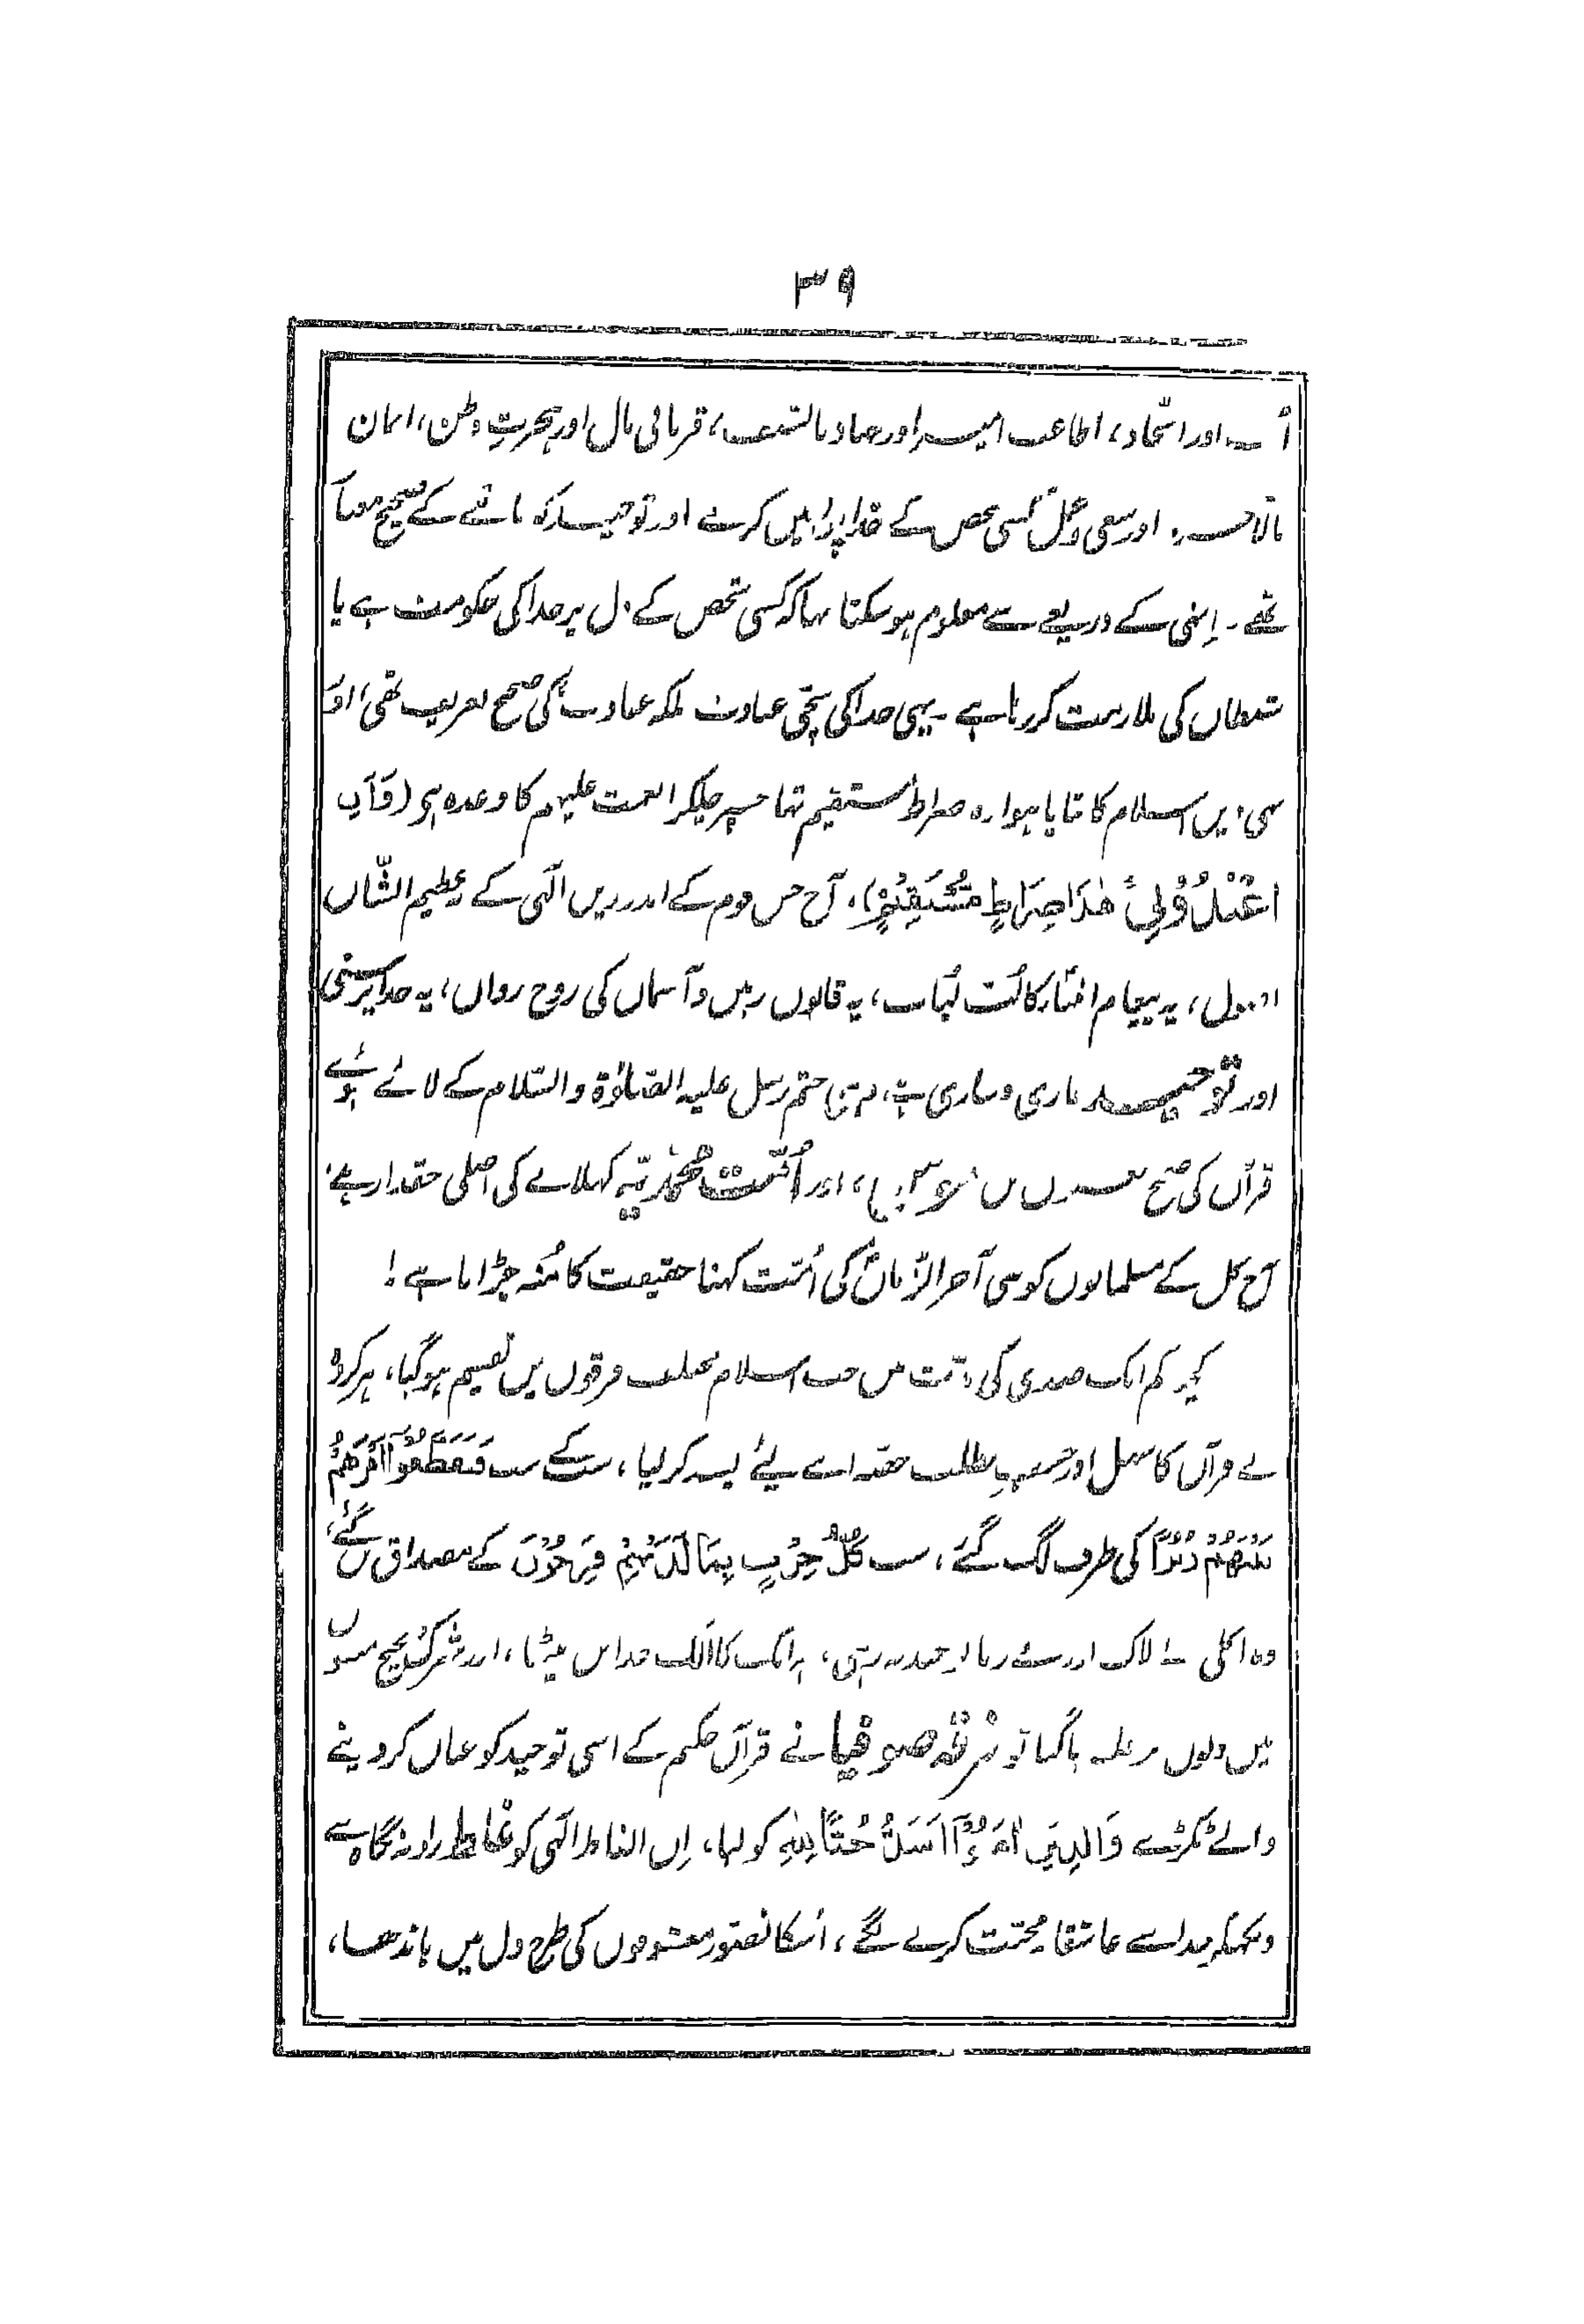 ٣٩
اور اتحاد، اطاعت امیر اور جہاد بالسیف، قربانی مال اور ہجرتِ وطن، ایمان
بالآخرۃ اور سعی و عمل کسی شخص کے خدا پر ایمان کرنے اور توحید کو ماننے کے صحیح معیار
تھے۔ اِنہی کے ذریعے سے معلوم ہو سکتا تھا کہ کسی شخص کے دل پر خدا کی حکومت ہے یا
شیطان کی ملازمت کر رہا ہے۔ یہی خدا کی سچّی عبادت بلکہ عبادت کی صحیح تعریف تھی، اور
یہی دین اسلام کا بتایا ہوا وہ صراط مستقیم تھا جسپر چلکر انعمت علیہم کا وعدہ ہی (وَاَنِ
اعْبُدُوْنِیْ هٰذَا صِرَاطٌ مُّسْتَقِیْمٌ)، آج جس قوم کے اندر دین الٰہی کے یہ عظیم الشّان
اصول، یہ پیغام اخیار کا لُبّ لُباب، یہ قانون زمین و آسمان کی روح رواں، یہ خدا پرستی
اور توحید جاری و ساری ہے، وہی ختم رسل علیہ الصّلوٰۃ والسّلام کے لائے ہوئے
قرآن کی صحیح معنوں میں اور اُمّت محمّدیّہ کہلانے کی اصلی حقدار ہے،
آج کل کے مسلمانوں کو نبی آخر الزّمانؐ کی اُمّت کہنا حقیقت کا مُنہ چڑانا ہے!
کم ایک صدی کی مدّت میں جب اسلام مختلف فرقوں میں تقسیم ہو گیا، ہر گروہ
نے قرآن کا سہل اور حسب مطلب حصّہ اپنے لیئے پسند کر لیا، سب کے سب فَتَقَطَّعُوْٓا اَمْرَهُمْ
بَیْنَهُمْ زُبُرًا کی طرف لگ گئے، سب كُلُّ حِزْبٍ بِمَا لَدَیْهِمْ فَرِحُوْنَ کے مصداق بن گئے،
وہ اگلی نہ رہی، ہر ایک کا الگ خدا بن بیٹھا، اور شرک صحیح معنوں
میں دلوں پر غلبہ پا گیا تو فرقۂ صوفیا نے قرآن حکیم کے اسی توحید کو عیاں کر دینے
والے ٹکڑے وَالَّذِیْنَ اٰمَنُوْٓا اَشَدُّ حُبًّا لِّلّٰهِ کو لیا، اِن الفاظ الٰہی کو غلط زاویہ نگاہ سے
دیکھکر خدا سے عاشقانہ محبّت کرنے لگے، اُسکا تصوّر معشوقوں کی طرح دل میں باندھا،